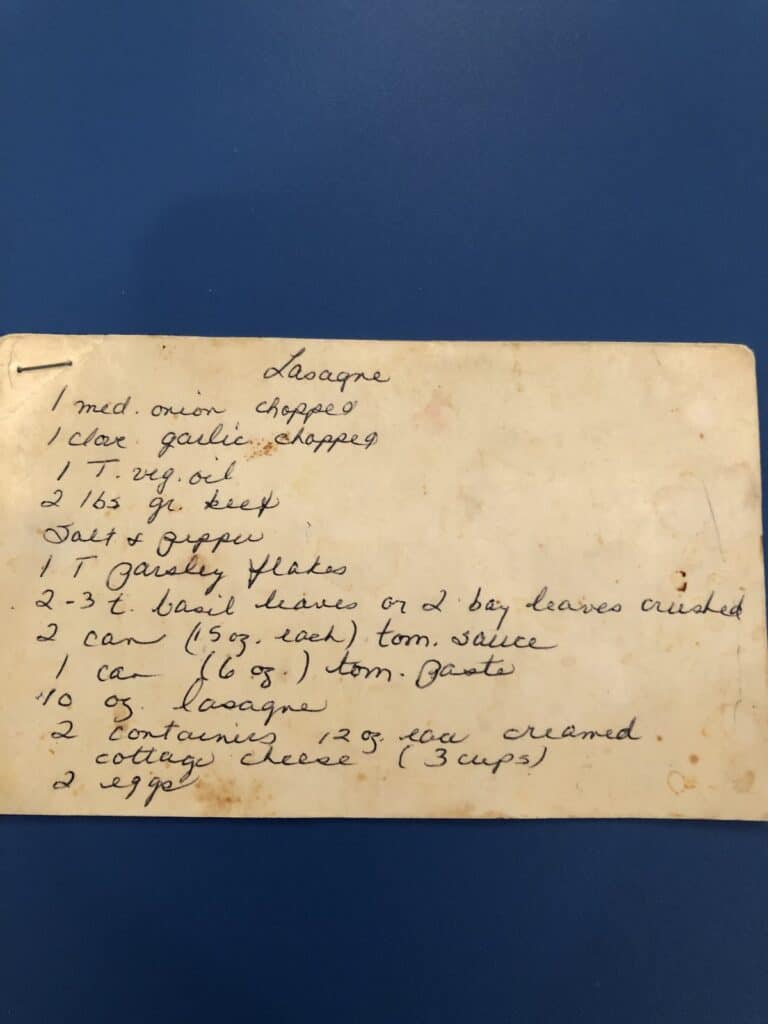 Lasagne
1 med. onion chopped
1 clove garlic chopped
1 T. veg. oil
2 lbs gr. beef
Salt & pepper
1 T parsley flakes
2-3 t. basil leaves or 2 bay leaves crushed
2 can (15 oz. each) tom. sauce
1 can (6 oz.) tom. paste
10 oz. lasagne
2 containers 12 oz. eaa creamed
cottage cheese (3 cups)
2 eggs